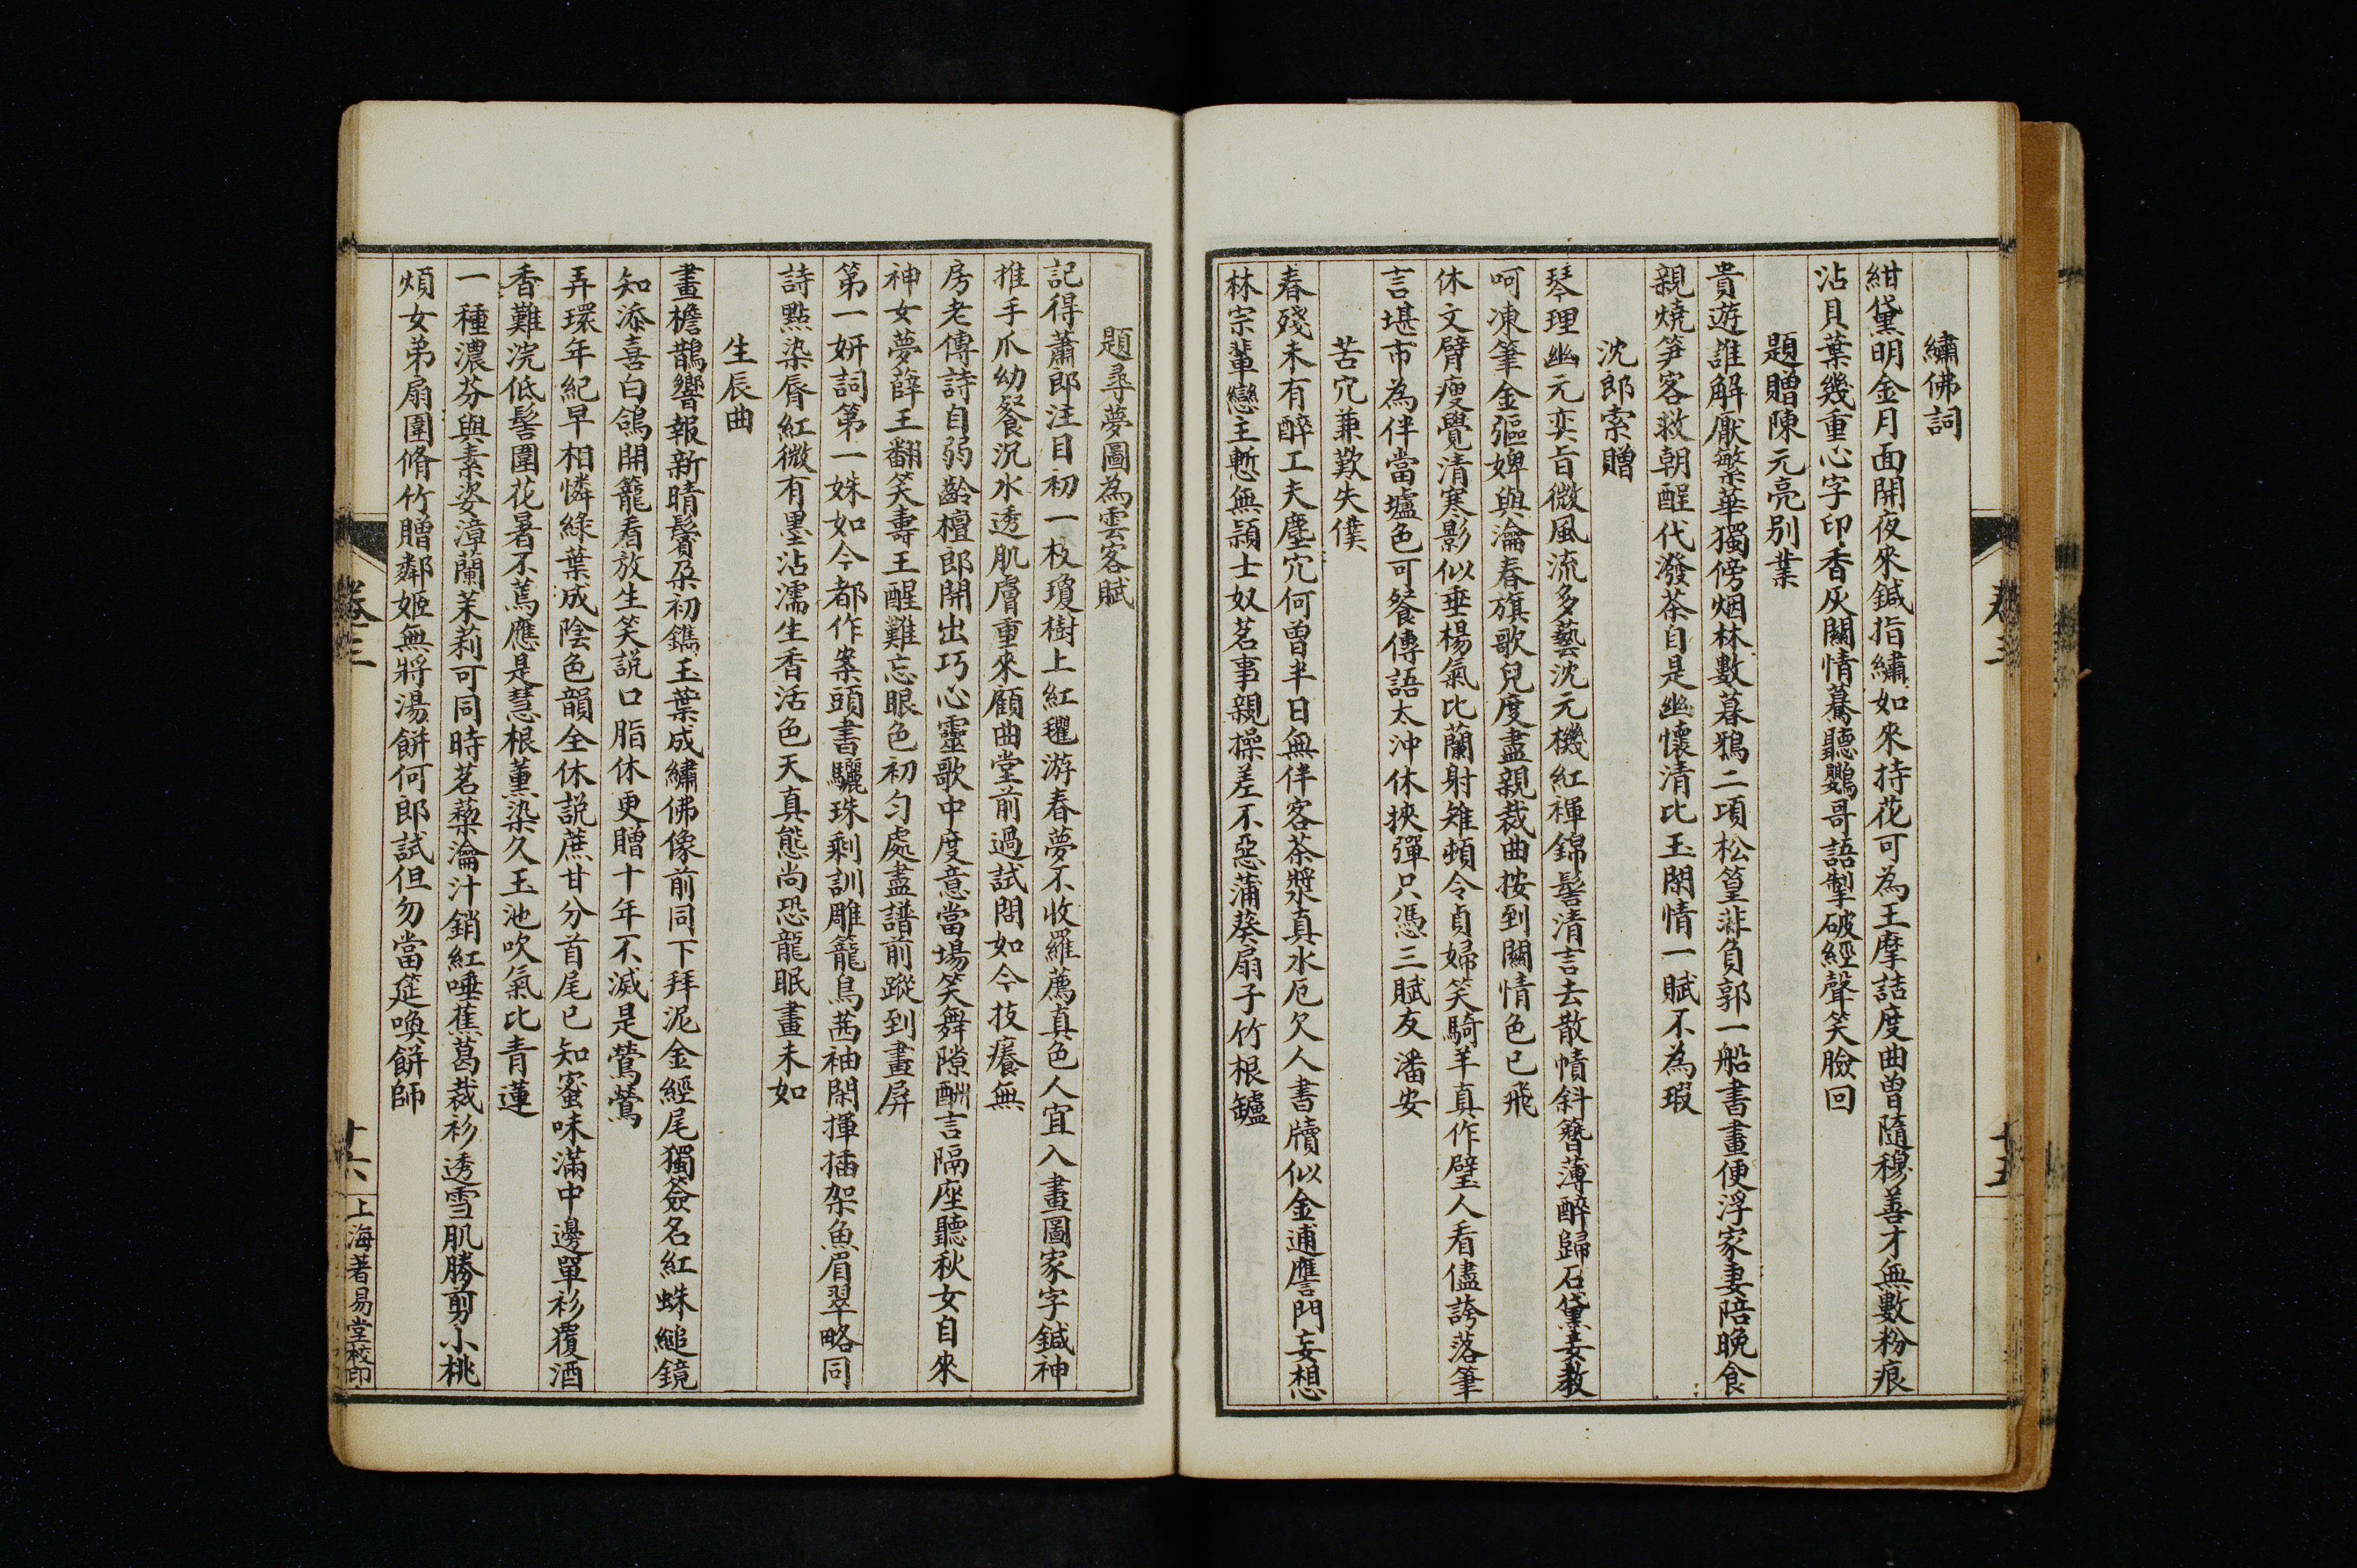 繡佛詞
紺黛明金月面開夜來鍼指繡如來持花可為王摩詰度曲曾隨穆善才無數粉痕
沾貝葉幾重心字印香灰關情驀聽鸚哥語掣破經聲笑臉回
題贈陳元亮別業
貴遊誰解厭繁華獨傍烟林數暮鴉二項松篁非負郭一船書畫便浮家妻陪晚食
親燒笋客救朝酲代潑茶自是幽懷清比玉閑情一賦不為瑕
沈郎索贈
琴理幽元奕旨微風流多藝沈元機紅褌錦髻清言去散幘斜簪薄醉歸石黛妾教
呵凍筆金彄婢與瀹春旗歌兒度盡親裁曲按到關情色已飛
休文臂瘦覺清寒影似垂楊氣比蘭射雉頓令貞婦笑騎羊真作璧人看儘誇落筆
言堪市為伴當壚色可餐傳語太沖休挾彈只憑三賦友潘安
苦穴兼歎失僕
春殘未有醉工夫塵穴何曾半日無伴客茶漿真水厄欠人書牘似金逋鷹門妄想
林宗輩戀主慙無頴士奴茗事親操差不惡蒲葵扇子竹根罏
卷三
十五
題尋夢圖為雲客賦
記得蕭郎注目初一枝瓊樹上紅氍游春夢不收羅薦真色人宜入畫圖家字鍼神
推手爪幼餐沉水透肌膚重來顧曲堂前過試問如今技癢無
房老傳詩自弱齡檀郎開出巧心靈歌中度意當場笑舞隙酬言隔座聽秋女自來
神女夢薛王翻笑壽王醒難忘眼色初勻處盡譜前蹤到畫屏
第一妍詞第一姝如今都作案頭書驪珠剩訓雕籠鳥茜袖閑揮插架魚眉翠略同
詩點染脣紅微有墨沾濡生香活色天真態尚恐龍眠畫未如
生辰曲
畫檐鵲響報新晴鬢朶初鐫玉葉成繡佛像前同下拜泥金經尾獨簽名紅蛛縋鏡
知添喜白鴿開籠看放生笑說口脂休更贈十年不滅是鶯鶯
弄環年紀早相憐綠葉成陰色韻全休說蔗甘分首尾已知蜜味滿中邊單衫覆酒
香難浣低髻圍花暑不蔫應是慧根薰染久玉池吹氣比青蓮
一種濃芬與素姿漳蘭茉莉可同時茗蘂瀹汁銷紅唾蕉葛裁衫透雪肌勝剪小桃
煩女弟扇圍脩竹贈鄰姬無將湯餅何郎試但勿當筵喚餅師
卷三
十六
上海著易堂校印